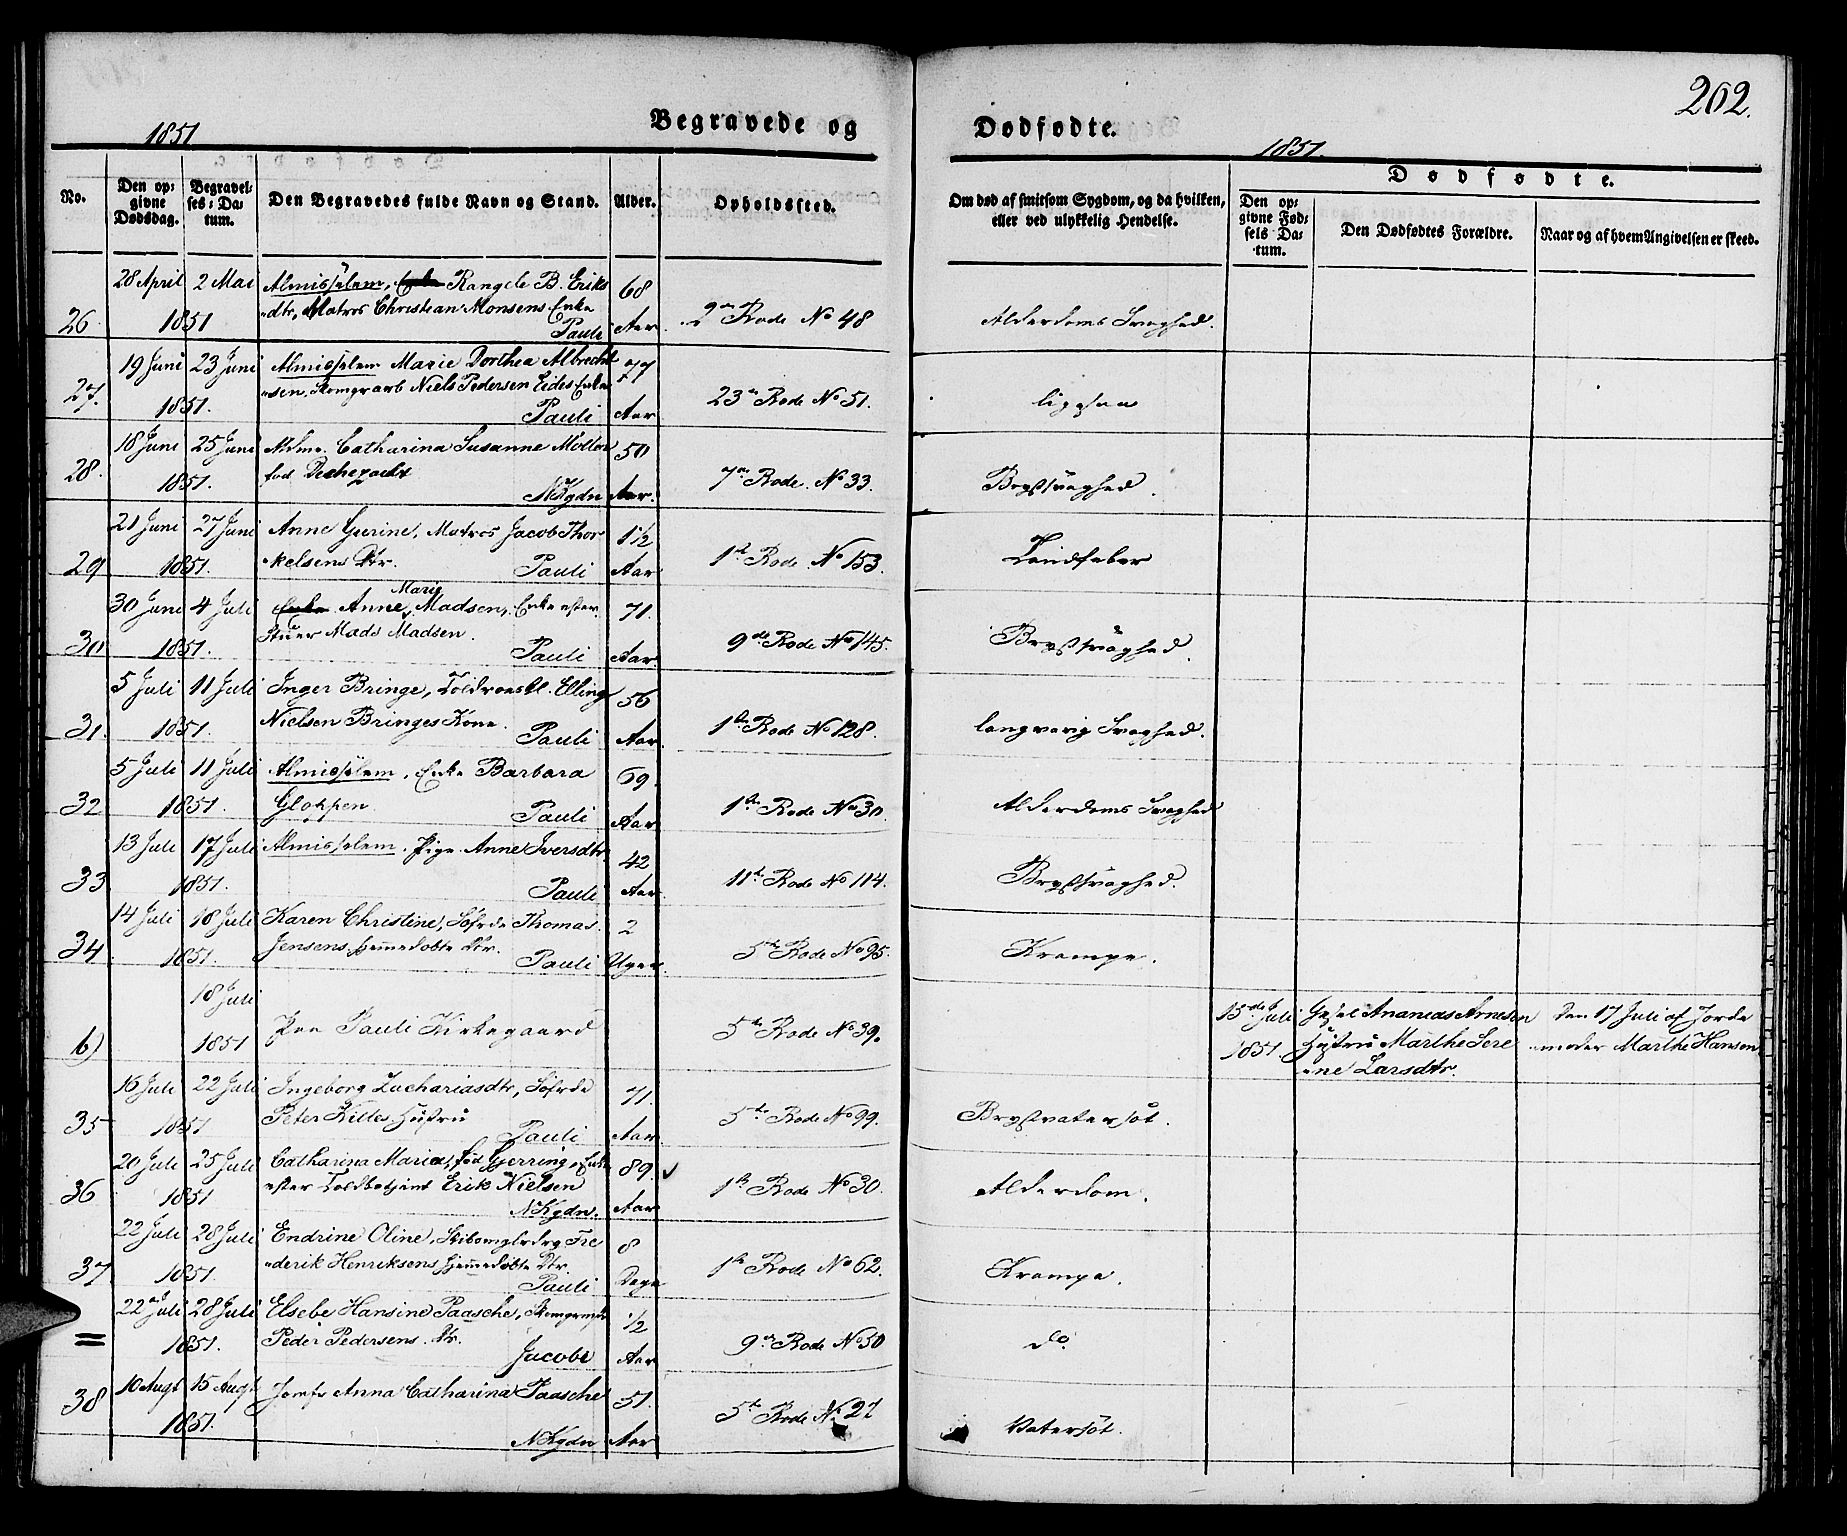 202.
1851
Begravede og
Dødfødte.
1851.
No.
Den opgivne Dødsdag.
Begravelses-Datum.
Den Begravedes fulde Navn og Stand.
Alder.
Opholdssted.
Om død af smitsom Sygdom, og da hvilken, eller ved ulykkelig Hendelse.
Dødfødte.
Den opgivne Fødsels Datum.
Den Dødfødtes Forældre.
Naar og af hvem Angivelsen er skeed.
28 April 2 Mai Almisselem, Enke Rangele B. Eriks 68
26. 1851 dtr, Matros Christian Monsens Enke Pauli Aar 2den Rode No 48 Alderdoms Svaghed.
19 Juni 23 Juni Almisselem Marie Dorthea Albrecht 77
27. 1851. sen, Niels Pedersen Eides Enke Pauli Aar 23de Rode No 51. ligesaa
18 Juni 25 Juni Mdme. Catharina Susanne Møller 50
28. 1851. fød NKgdn Aar. 7de Rode. No 33. Brystsvaghed.
21 Juni 27 Juni Anne Gurine, Matros Jacob Thor 1½
29 1851. kelsens Dtr. Pauli Aar 1ste Rode. No 153. Tandfeber
30 Juni 4 Juli Enke Anne Marie Madsen, Enke efter 71.
30 1851. Stuer Mads Madsen. Pauli Aar 9de Rode No 145. Brystsvaghed.
5 Juli 11 Juli Inger Bringe, Elling 56
31. 1851. Nielsen Bringes Kone. Pauli Aar. 1ste Rode No 128. langvarig Svaghed.
5 Juli 11 Juli Almisselem, Enke Barbara 69.
32 1851. Gloppen. Pauli Aar 1ste Rode No 30. Alderdoms Svaghed
13 Juli 17 Juli Almisselem. Pige Anne Iversdtr. 42
33 1851. Pauli Aar. 11te Rode No 114. Brystsvaghed.
14 Juli 18 Juli Karen Christine, Søfrde Thomas 2
34 1851. Jensens hjemmedøbte Dtr. Pauli Uger. 5te Rode No 95. Krampe.
18 Juli 15de Juli Gesel Ananias Arnesen Den 17 Juli af Jorde
6) 1851 Paa Pauli Kirkegaard 5te Rode No 39. 1851 Hustru Marthe Sere moder Marthe Hansen
ine Larsdtr.
16 Juli 22 Juli Ingeborg Zachariasdtr, Søfrde 71.
35 1851 Peter Killes Hustru Pauli Aar 5te Rode No 99. Brystvatersot.
20 Juli 25 Juli Catharina Maria, fød Gjerring, Enke 89.
36 1851 efter Toldbetjent Erik Nielsen NKgdn. Aar 1ste Rode No 30. Alderdom.
22 Juli 28 Juli Endrine Oline, Fre 8
37 1851. derik Henriksens hjemmedøbte Dtr. Pauli Dage 1ste Rode No 62. Krampe.
22 Juli 28 Juli Elsebe Hansine Paasche, ½
= 1851. Peder Pedersens Dtr. Jacobi Aar 9de Rode No 50 do
10 Augt 15 Augt Jomfr Anna Catharina Paasche 51.
38 1851. NKgdn Aar 5te Rode No 27 Vatersot.